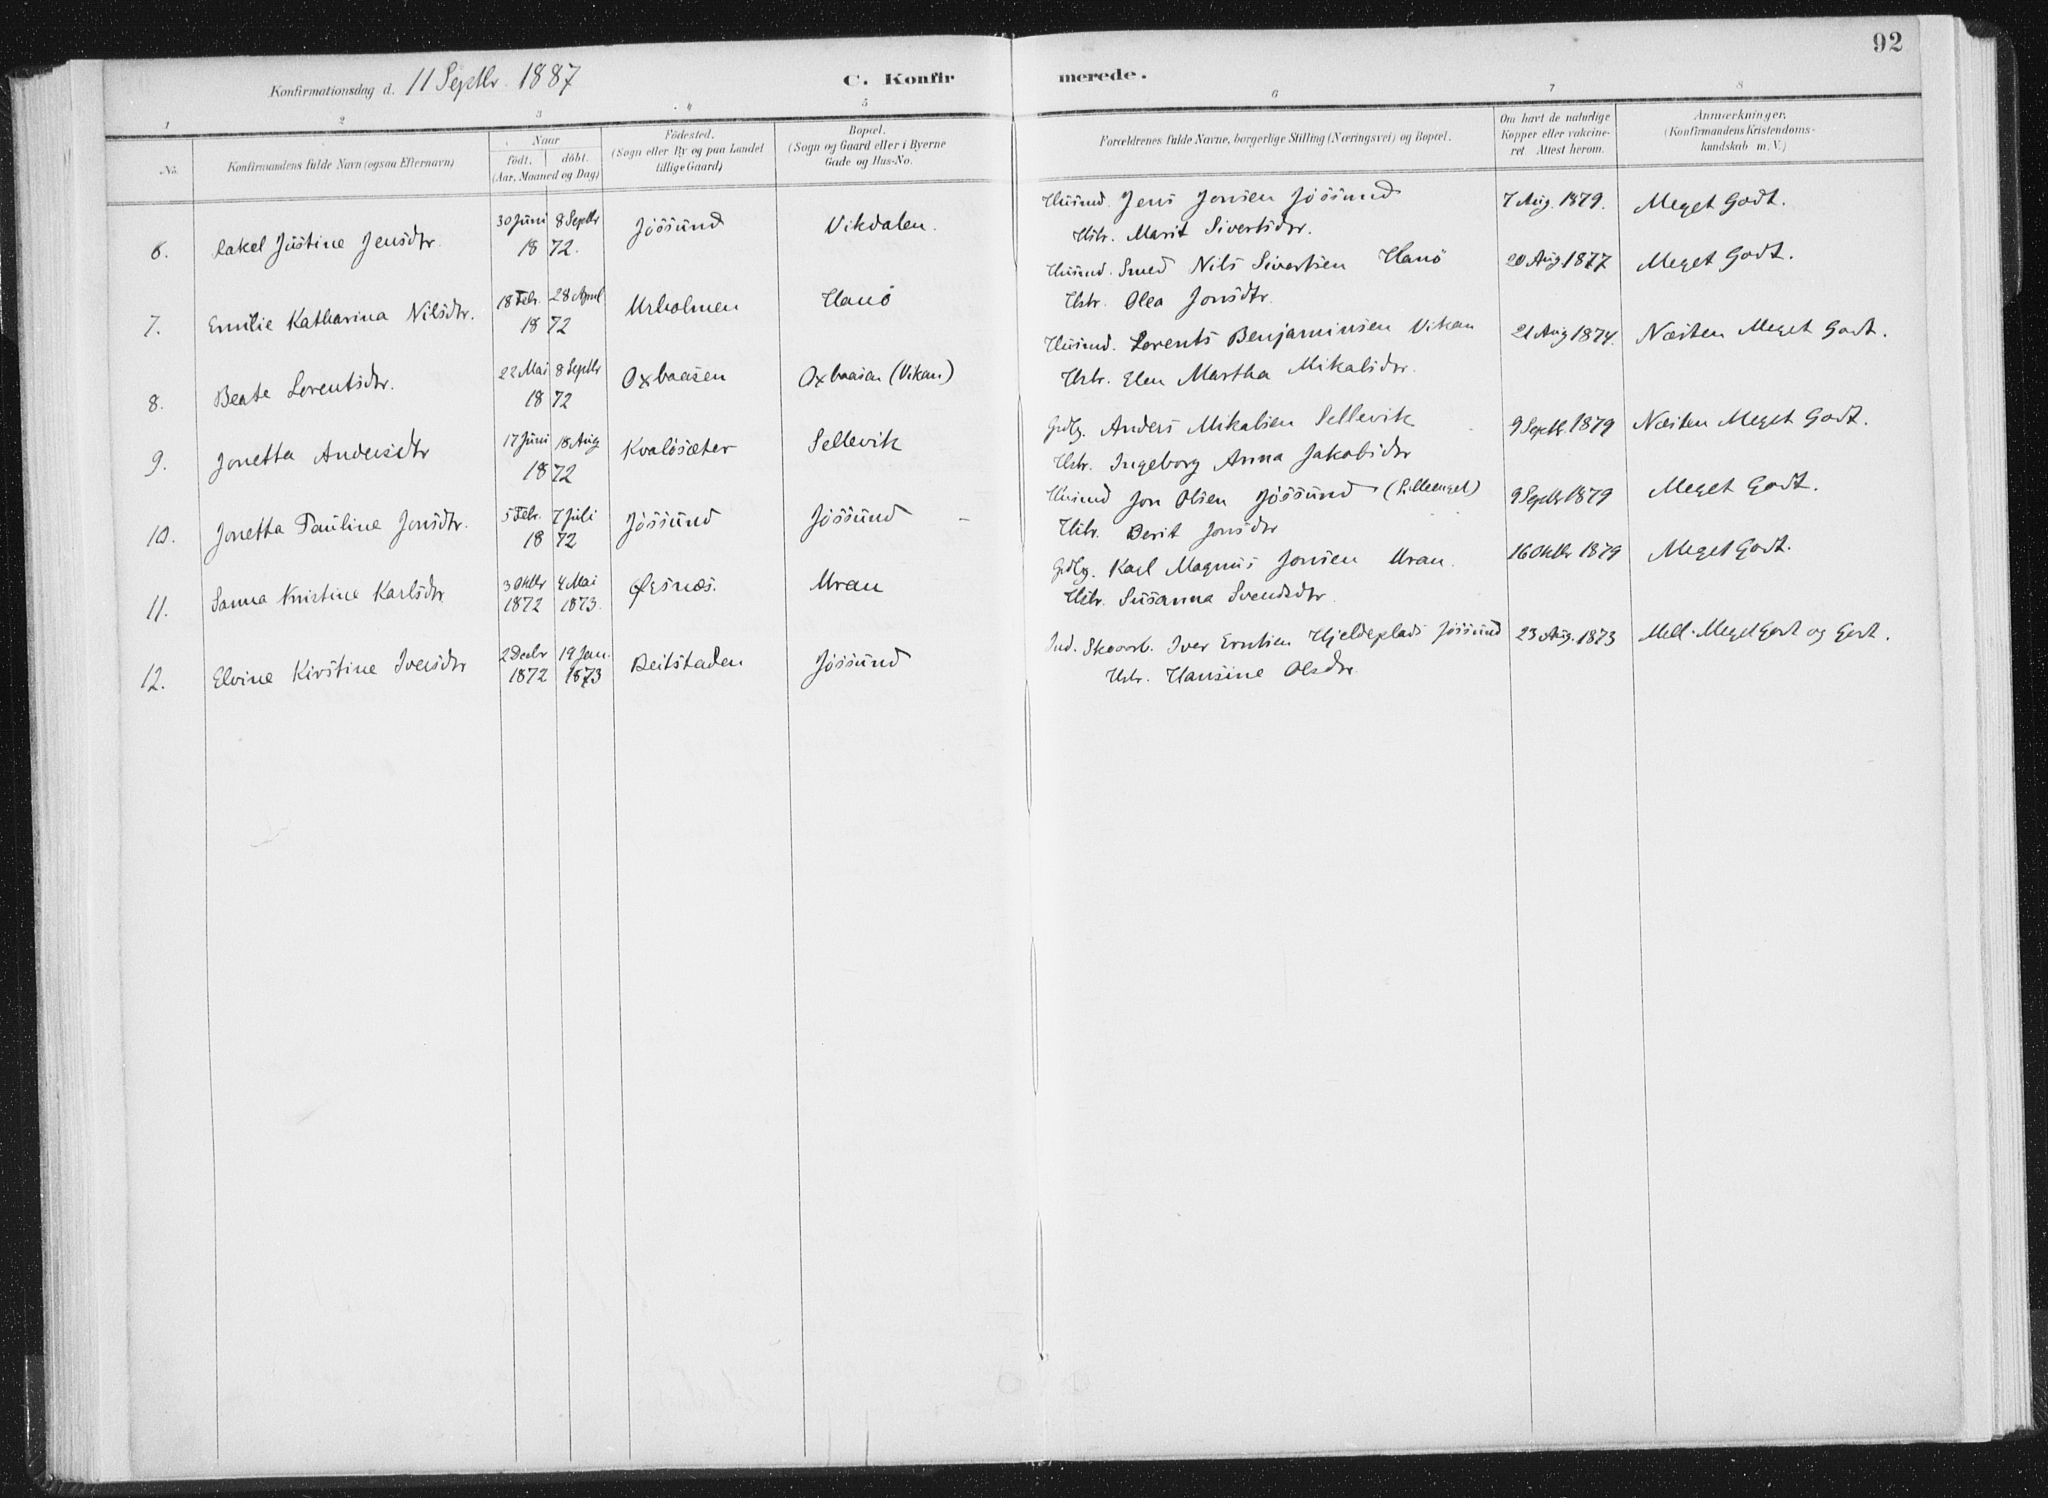 92
Konfirmationsdag d. 11 Septbr. 1887 C. Konfir merede.
1 2 3 4 5 6 7 8
No.
Konfirmandens fulde Navn (ogsaa Efternavn)
Naar
født. døbt.
(Aar, Maaned og Dag)
Fødested.
(Sogn eller By og paa Landet
tillige Gaard)
Bopæl.
(Sogn og Gaard eller i Byerne
Gade og Hus-No.
Forældrenes fulde Navne, borgerlige Stilling (Næringsvei) og Bopæl.
Om havt de naturlige
Kopper eller vaccine-
ret Attest herom.
Anmærkninger,
(Konfirmandens Kristendoms-
kundskab m. V.)
6. Rakel Justine Jensdtr. 30 Juni 8 Septbr Jössund Vikdalen. Husmd. Jens Jonsen Jössund 7 Aug. 1879. Meget Godt.
18 72. Hstr. Marit Sivertsdtr.
7. Emilie Katharina Nilsdtr. 18 Febr. 28 April Urholmen Hanö Husmd. Smed Nils Sivertsen Hanö 20 Aug 1877 Meget Godt.
18 72 Hstr. Olea Jonsdtr.
8. Beate Lorentsdtr. 22 Mai 8 Septbr Oxbaasen Oxbaasen (Vikan) Husmd. Lorents Benjaminsen Vikan 21 Aug 1874. Næsten Meget Godt.
18 72 Hstr. Elen Martha Mikalsdtr.
9. Jonetta Andersdtr 17 Juni 18 Aug Kvalösæter Sellevik Grdbg. Anders Mikalsen Sellevik 9 Septb. 1879 Næsten Meget Godt.
18 72 Hstr. Ingeborg Anna Jakobsdtr
10. Jonetta Pauline Jonsdtr. 5 Febr. 7 Juli Jössund Jössund Husmd Jon Olsen Jössund (Lilleenget) 9 Septbr 1879 Meget Godt.
18 72 Hstr. Berit Jonsdtr
11. Sanna Kristine Karlsdtr 3 Oktbr 4 Mai Øesnæs. Uran Grdbg. Karl Magnus Jonsen Uran. 16 Oktbr 1879 Meget Godt.
1872 1873. Hstr. Susanna Svendsdtr.
12. Elvine Kirstine Iversdtr 2 Decbr 19 Jan. Beitstaden Jössund Ind. Skoarb. Iver Erntsen Hjeldeplads Jössund 23 Aug. 1873 Mell. Meget Godt og Godt.
1872 1873 Hstr. Hansine Olsdtr.